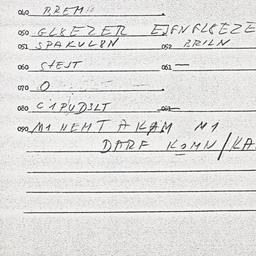 040 BREM
050 GLEEZER EJENFLEEZE
051 SPAKULEN 052 BRILN
060 STEJT 061 —
070 O
080 C1PUDSLT 081 —
090 M1 NEMT A KAM M1
DARF KOMN/KA